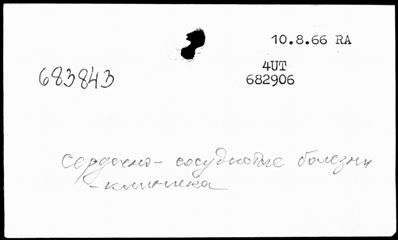 10.8.66 RA
4UT
683843 682906
сердечно-сосудистые болезни
-клиника